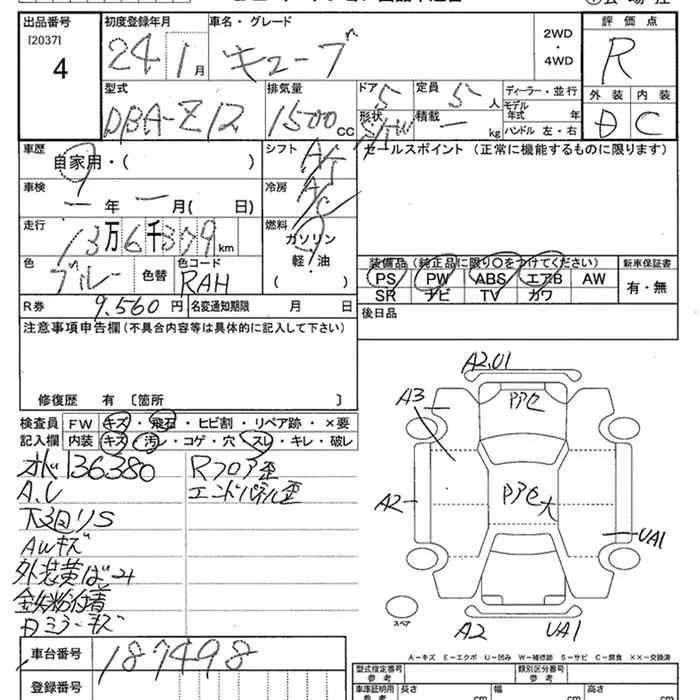 出品番号
[2037]
4
初度登録年月
24 1月
車名・グレード
キューブ
2WD
・
4WD
評価点
R
外装 内装
D C
型式
DBA-Z12
排気量
1500cc
ドア
5
形状
S/W
定員
5人
積載
ー kg
ディーラー・並行
モデル年式 年
ハンドル 左・右
車歴
自家用・( )
シフト
冷房
A/C
セールスポイント (正常に機能するものに限ります)
車検
ー年 ー月( 日)
走行
13万6千379km
燃料
ガソリン
軽・油
( )
色
ブルー
色替
色コード
RAH
装備品(純正品に限り〇をつけてください)
PS PW ABS エアB AW
SR ナビ TV カワ
新車保証書
有・無
R券 9,560円
名変通知期限 月 日
後日品
注意事項申告欄(不具合内容等は具体的に記入して下さい)
修復歴 有〔箇所 〕
検査員記入欄
FW キズ・飛石・ヒビ割・リペア跡・×要
内装 キズ・汚レ・コゲ・穴・スレ・キレ・破レ
136380 Rフロア歪
A.U エンドパネル歪
下廻リS
AWキズ
外装黄ばみ
鉄粉付着
日ミラーキズ
A2,U1
A3
PPC
A2
PPC大
UA1
スペア
A2 UA1
A-キズ E-エクボ U-凹み W-補修跡 S-サビ C-腐食 ××-交換済
車台番号
187498
登録番号
型式指定番号
参考
類別区分番号
参考
車庫証明用
参考
長さ cm
幅 cm
高さ cm